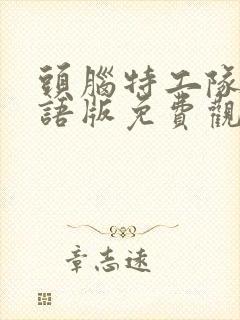 頭腦特工隊
語版免費觀
章志遠